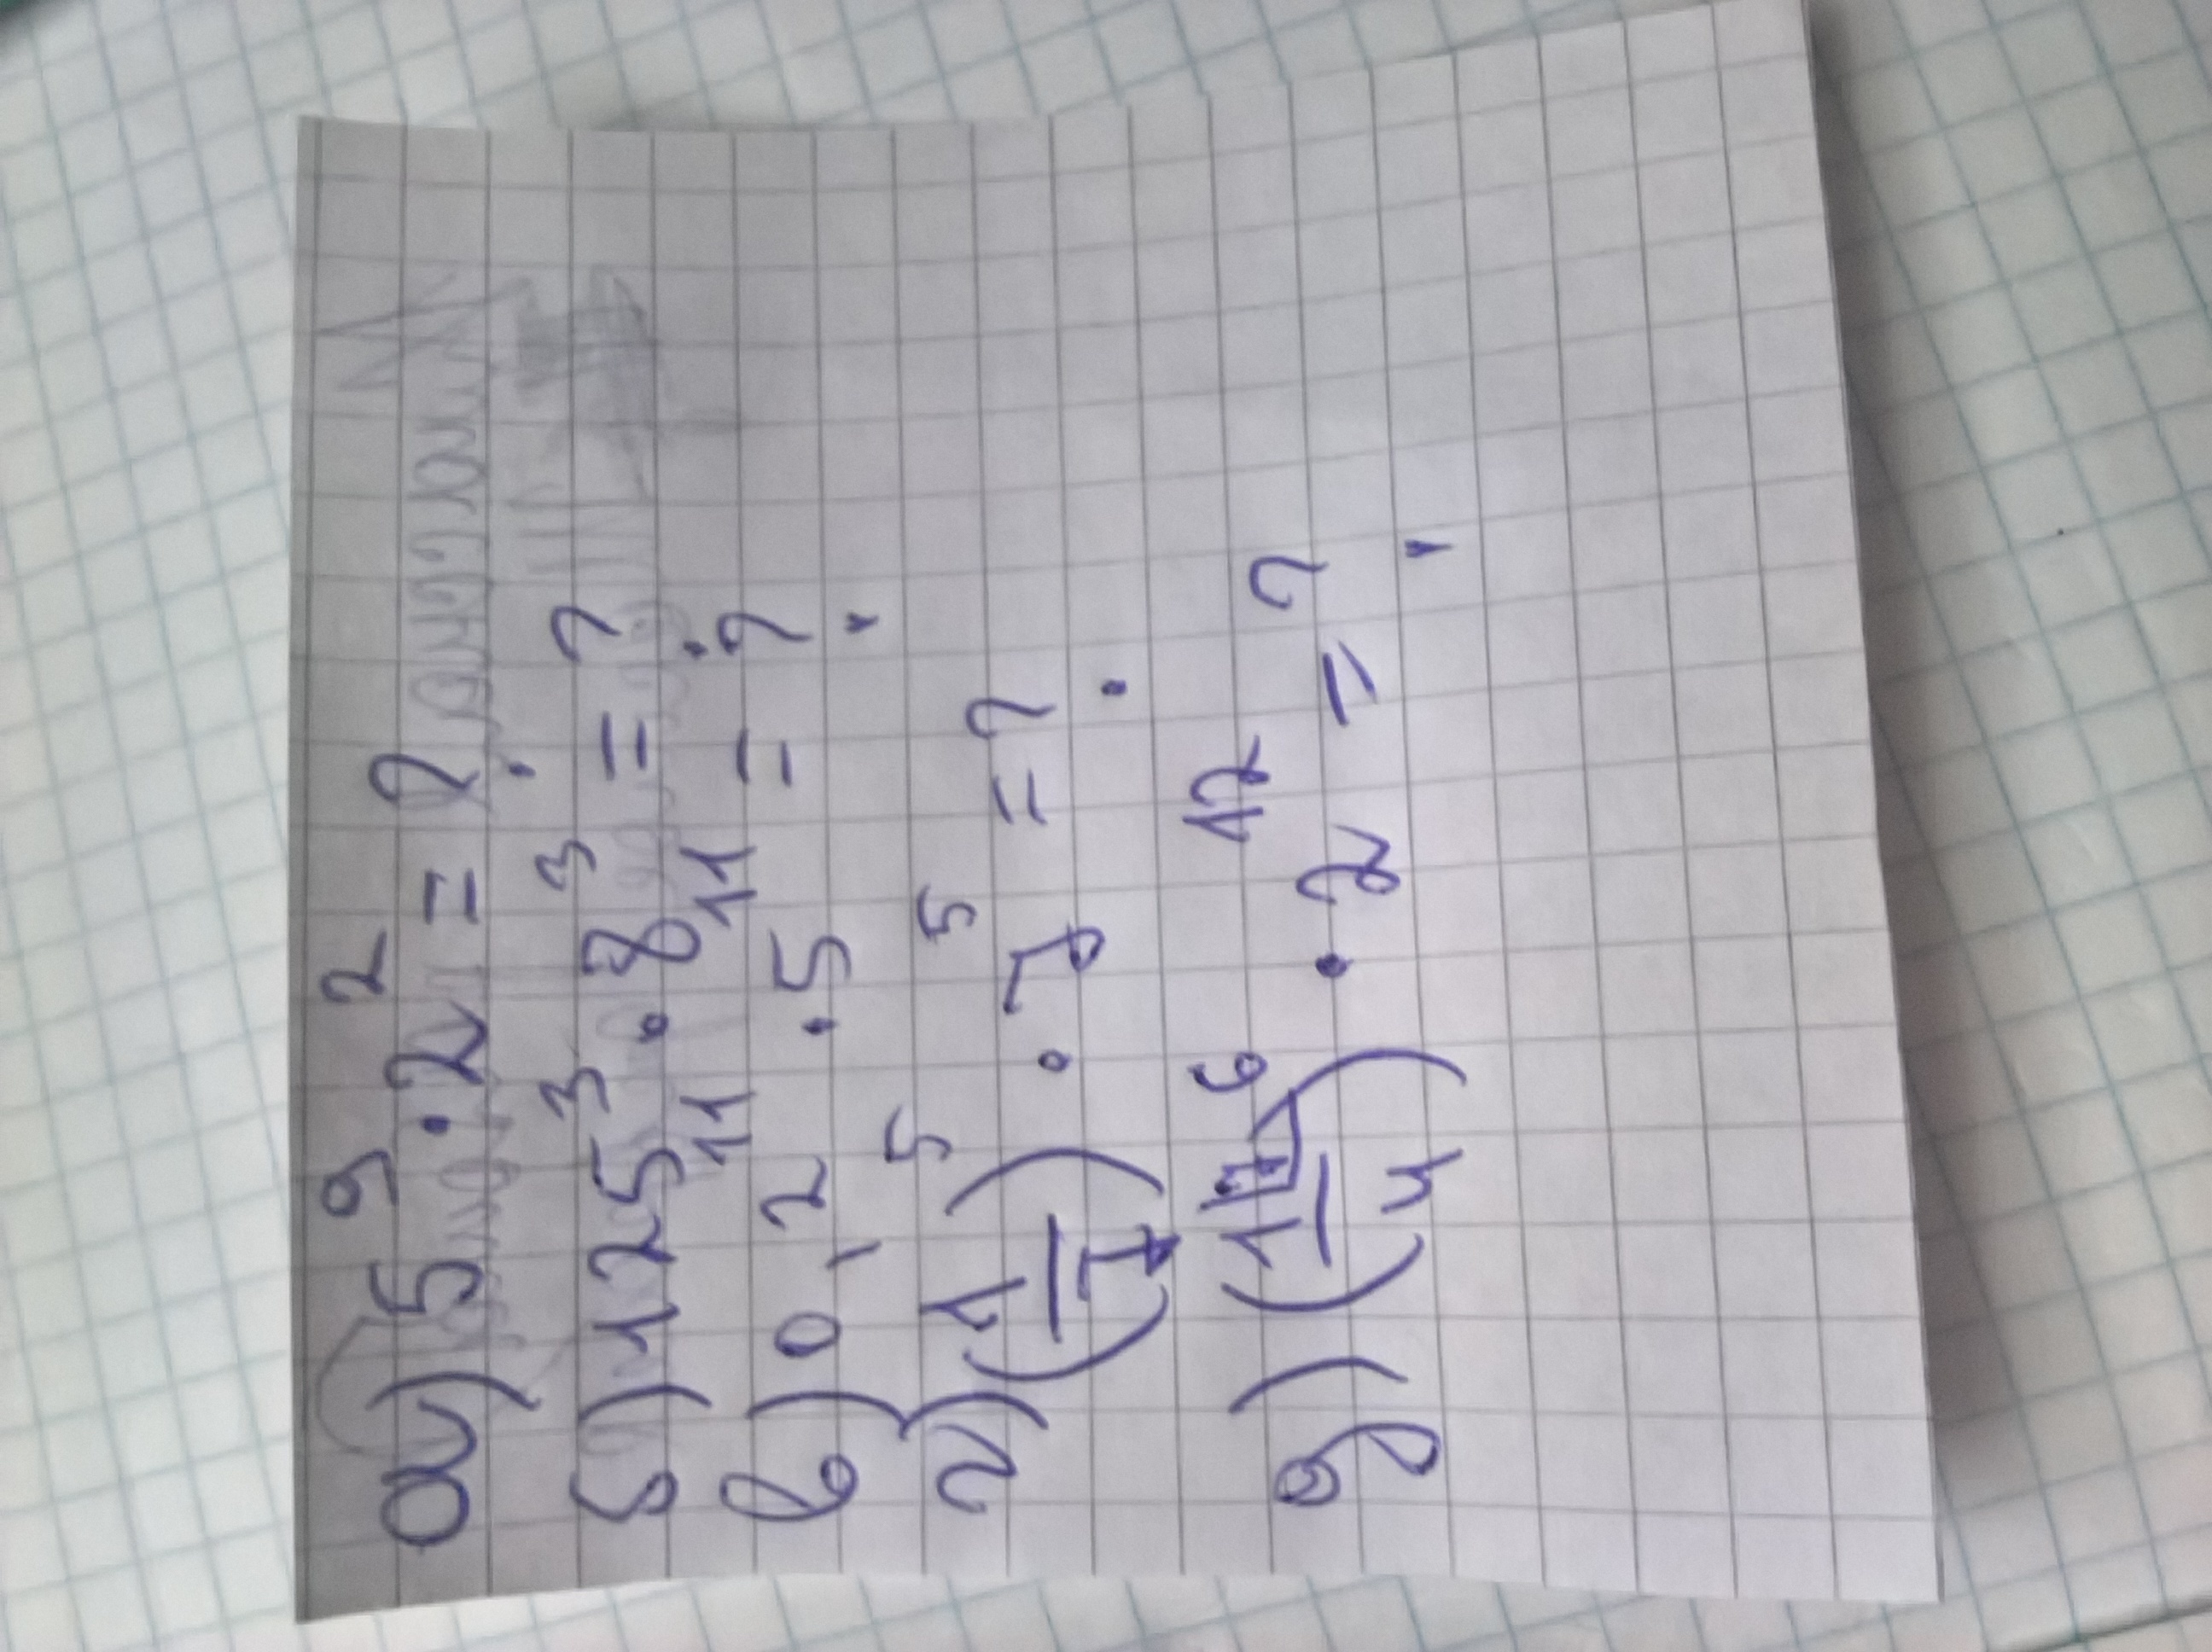 а) 5⁹ · 2² = ?
б) 125³ · 8³ = ?
в) 0,2¹¹ · 5¹¹ = ?
г) (1/7)⁵ · 7⁵ = ?
д) (1/4)⁶ · 2¹² = ?